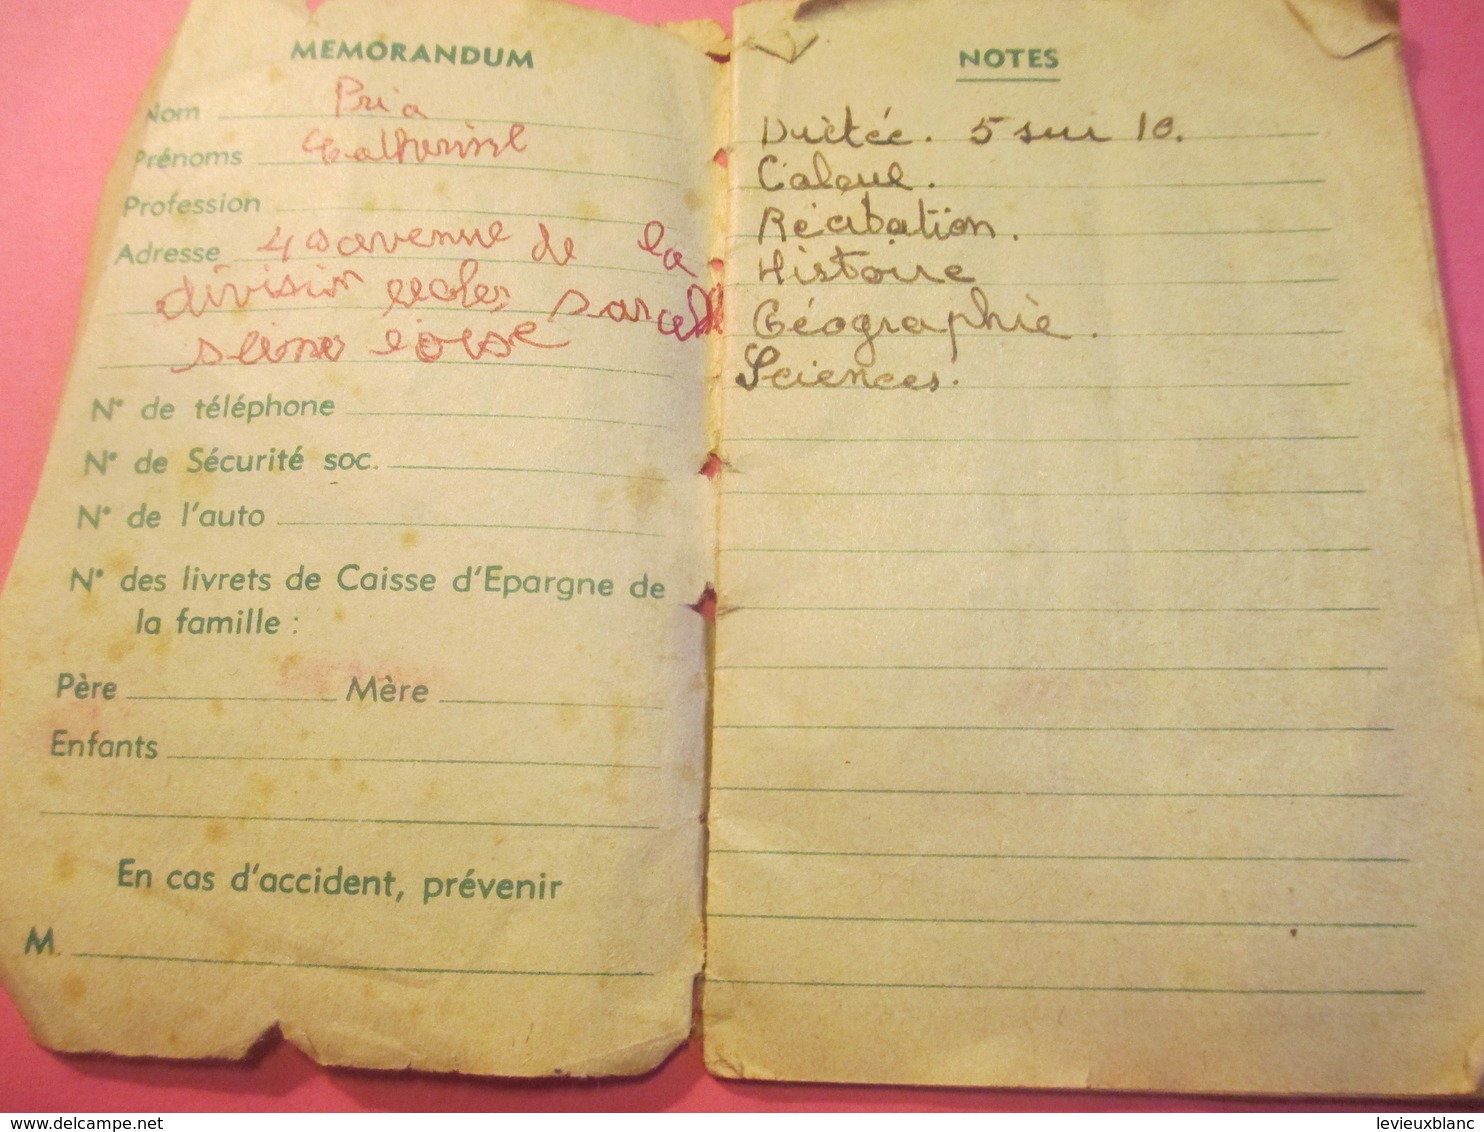 MEMORANDUM
Nom Pria
Prénoms Catherine
Profession
Adresse 40 avenue de la
division
seine
N° de téléphone
N° de Sécurité soc.
N° de l'auto
N° des livrets de Caisse d'Epargne de
la famille :
Père Mère
Enfants
En cas d'accident, prévenir
M.
NOTES
Dictée. 5 sur 10.
Calcul.
Récitation.
Histoire
Géographie.
Sciences.
delcampe.net
levieuxblanc